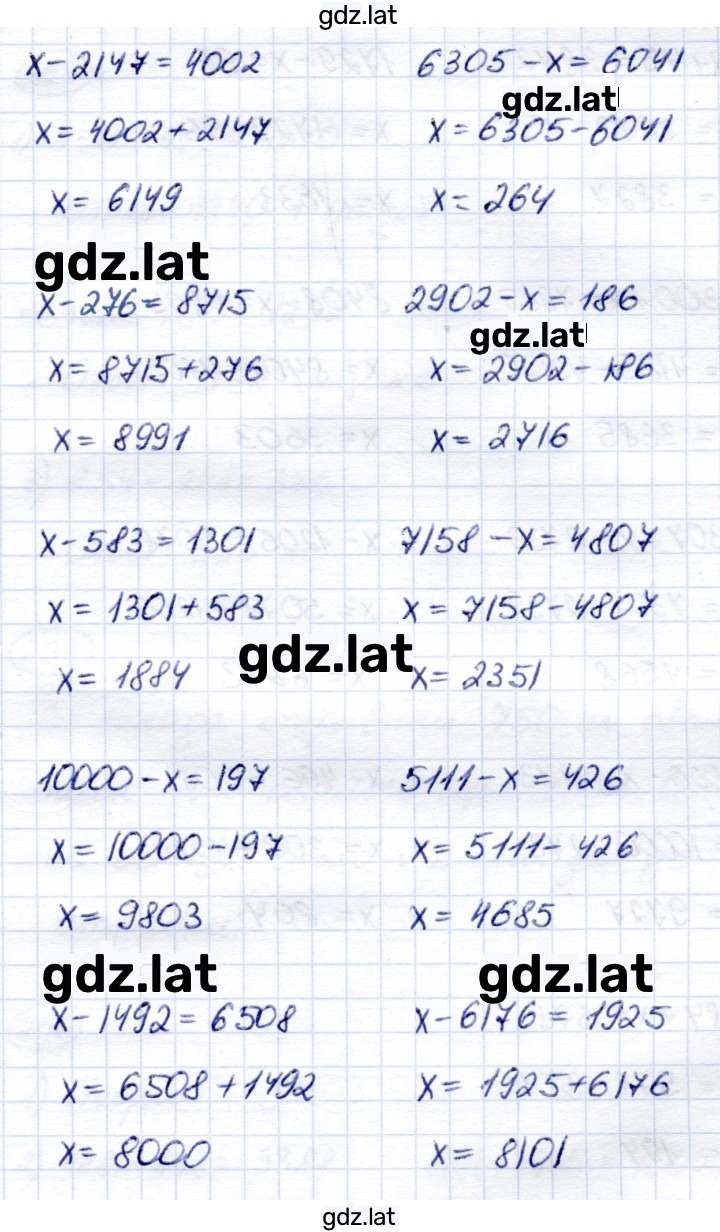 gdz.lat
x-2147=4002 6305-x=6041
gdz.lat
x=4002+2147 x=6305-6041
x=6149 x=264
gdz.lat
x-276=8715 2902-x=186
gdz.lat
x=8715+276 x=2902-186
x=8991 x=2716
x-583=1301 7158-x=4807
x=1301+583 x=7158-4807
gdz.lat
x=1884 x=2351
10000-x=197 5111-x=426
x=10000-197 x=5111-426
x=9803 x=4685
gdz.lat gdz.lat
x-1492=6508 x-6176=1925
x=6508+1492 x=1925+6176
x=8000 x=8101
gdz.lat